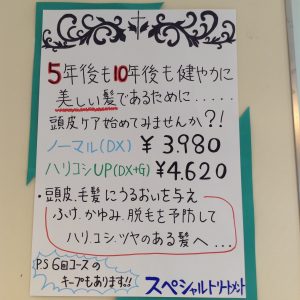 5年後も10年後も健やかに
美しい髪であるために.....
頭皮ケア始めてみませんか?!
ノーマル(DX) ¥3,980
ハリコシUP(DX+G) ¥4,620
・頭皮、毛髪にうるおいを与え
ふけ、かゆみ、脱毛を予防して
ハリ、コシ、ツヤのある髪へ...
P.S 6回コースの
キープもあります!!
スペシャルトリートメント